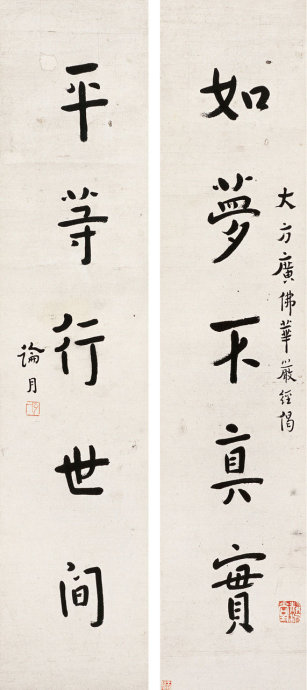 大方廣佛華嚴經偈
如夢不真實
平等行世間
論月